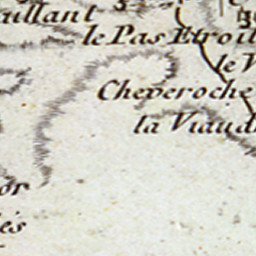 aillant
le Pas Etroit
le
Cheveroche
la Viaud
or
és